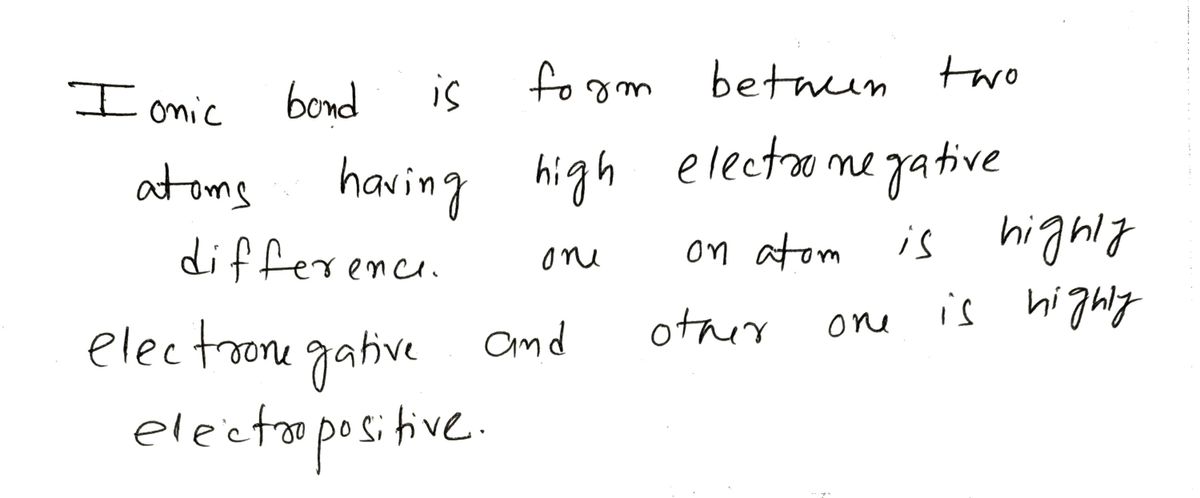 Ionic bond is form between two
atoms having high electronegative
difference. one on atom is highly
electronegative and other one is highly
electropositive.